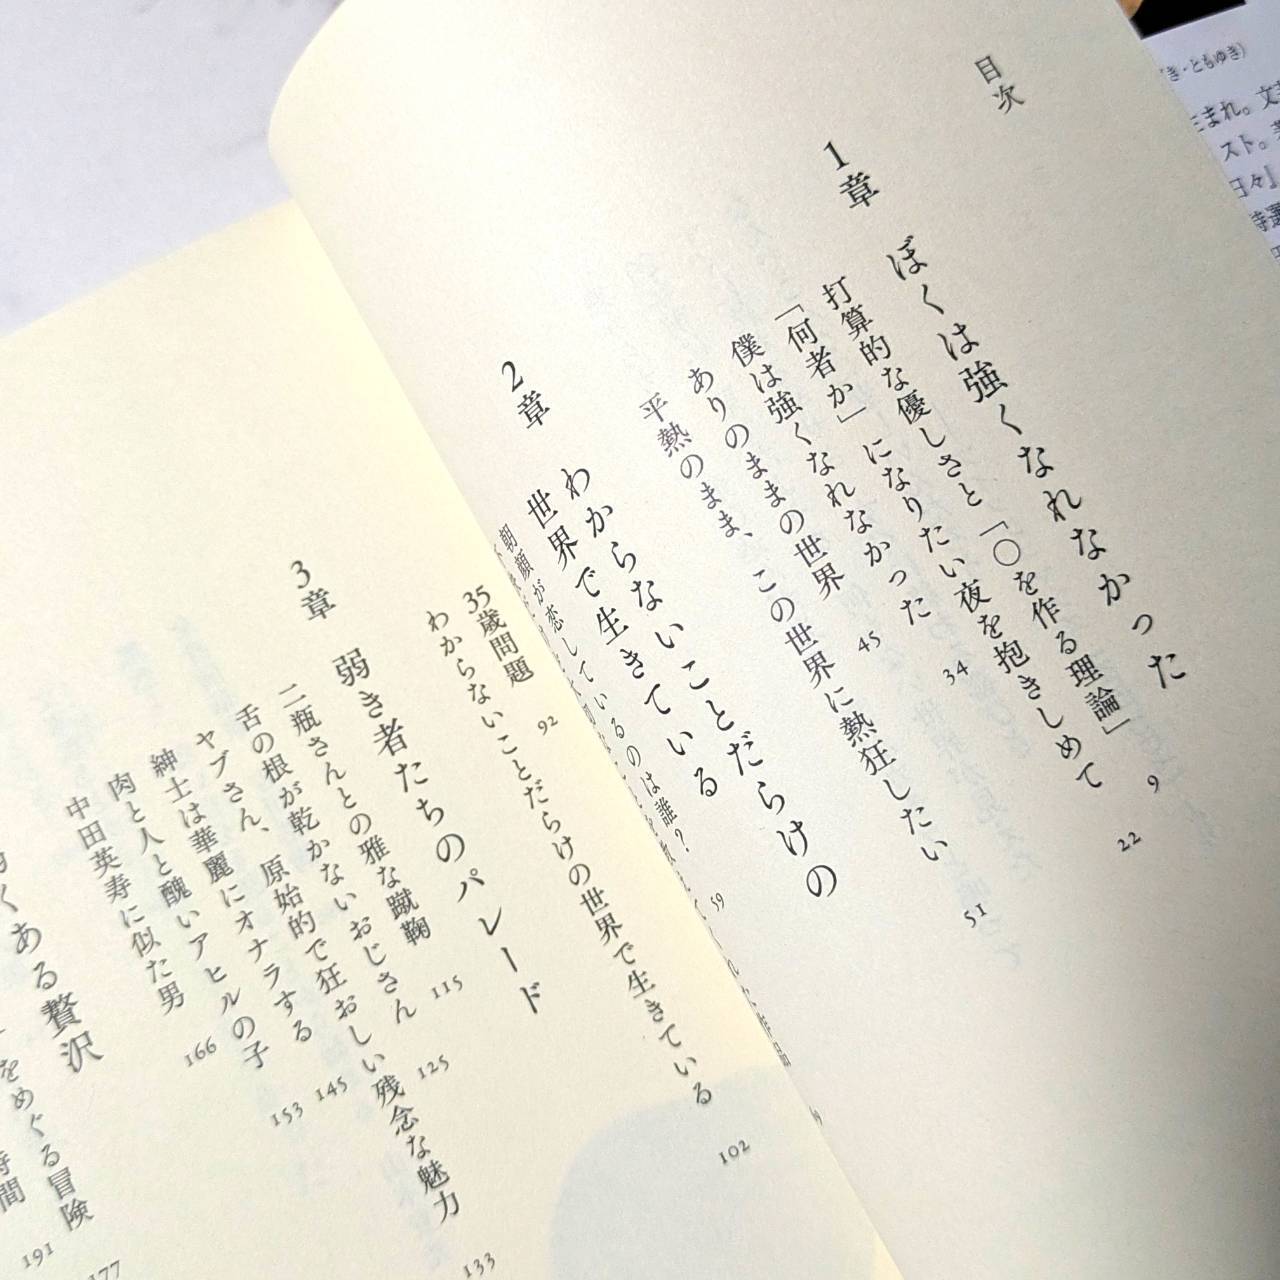 目次
1章 ぼくは強くなれなかった
打算的な優しさと「〇を作る理論」 9
「何者か」になりたい夜を抱きしめて 22
僕は強くなれなかった 34
ありのままの世界 45
平熱のまま、この世界に熱狂したい 51
2章 わからないことだらけの
世界で生きている
朝顔が恋しているのは誰? 59
35歳問題 92
わからないことだらけの世界で生きている 102
3章 弱き者たちのパレード
二瓶さんとの雅な蹴鞠 115
舌の根が乾かないおじさん 125
ヤブさん、原始的で狂おしい残念な魅力 133
紳士は華麗にオナラする 145
肉と人と醜いアヒルの子 153
中田英寿に似た男 166
くある贅沢
177
をめぐる冒険 191
時間
き・ともゆき)
まれ。文
スト。
日々』